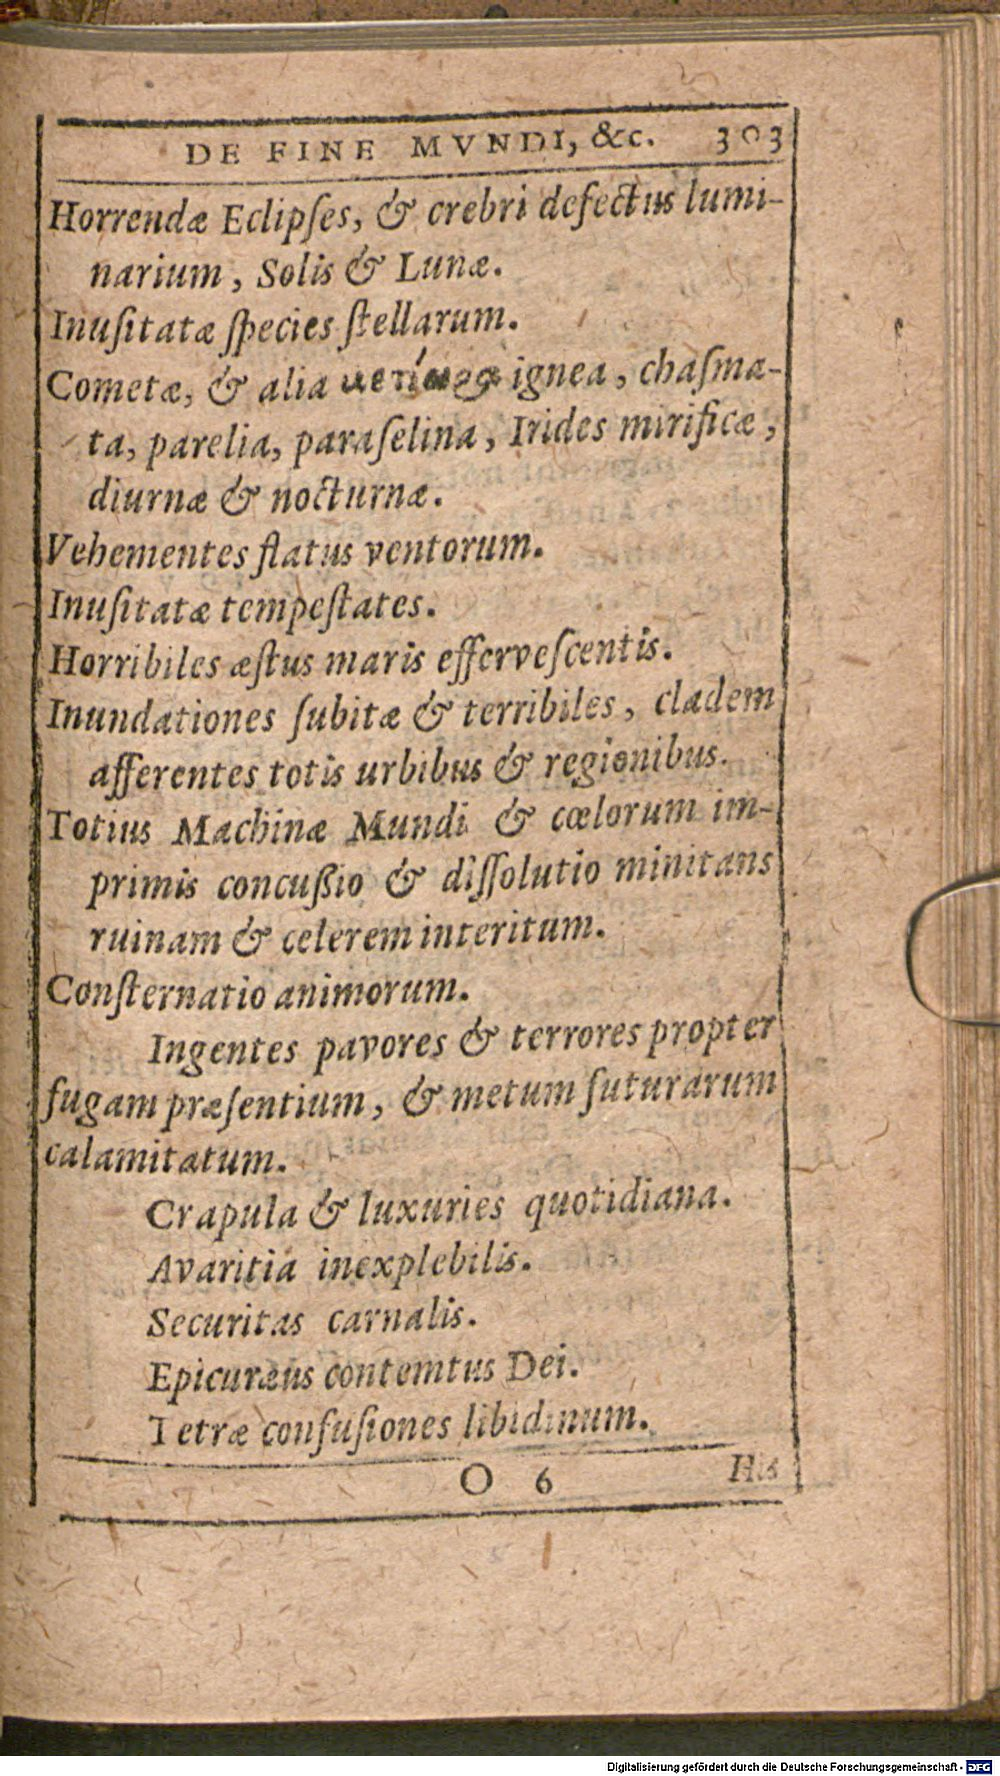 DE FINE MVNDI, &c. 303
Horrendæ Eclipſes, & crebri defectus lumi-
narium, Solis & Lunæ.
Inuſitatæ ſpecies ſtellarum.
Cometæ, & alia ignea, chaſma-
ta, parelia, paraſelina, Irides mirificæ,
diurnæ & nocturnæ.
Vehementes flatus ventorum.
Inuſitatæ tempeſtates.
Horribiles æſtus maris efferveſcentis.
Inundationes ſubitæ & terribiles, cladem
afferentes totis urbibus & regionibus.
Totius Machinæ Mundi & cœlorum im-
primis concuſſio & diſſolutio minitans
ruinam & celerem interitum.
Conſternatio animorum.
Ingentes pavores & terrores propter
fugam præſentium, & metum futurarum
calamitatum.
Crapula & luxuries quotidiana.
Avaritia inexplebilis.
Securitas carnalis.
Epicuræus contemtus Dei.
Tetræ confuſiones libidinum.
O 6 His
Digitalisierung gefördert durch die Deutsche Forschungsgemeinschaft - DFG